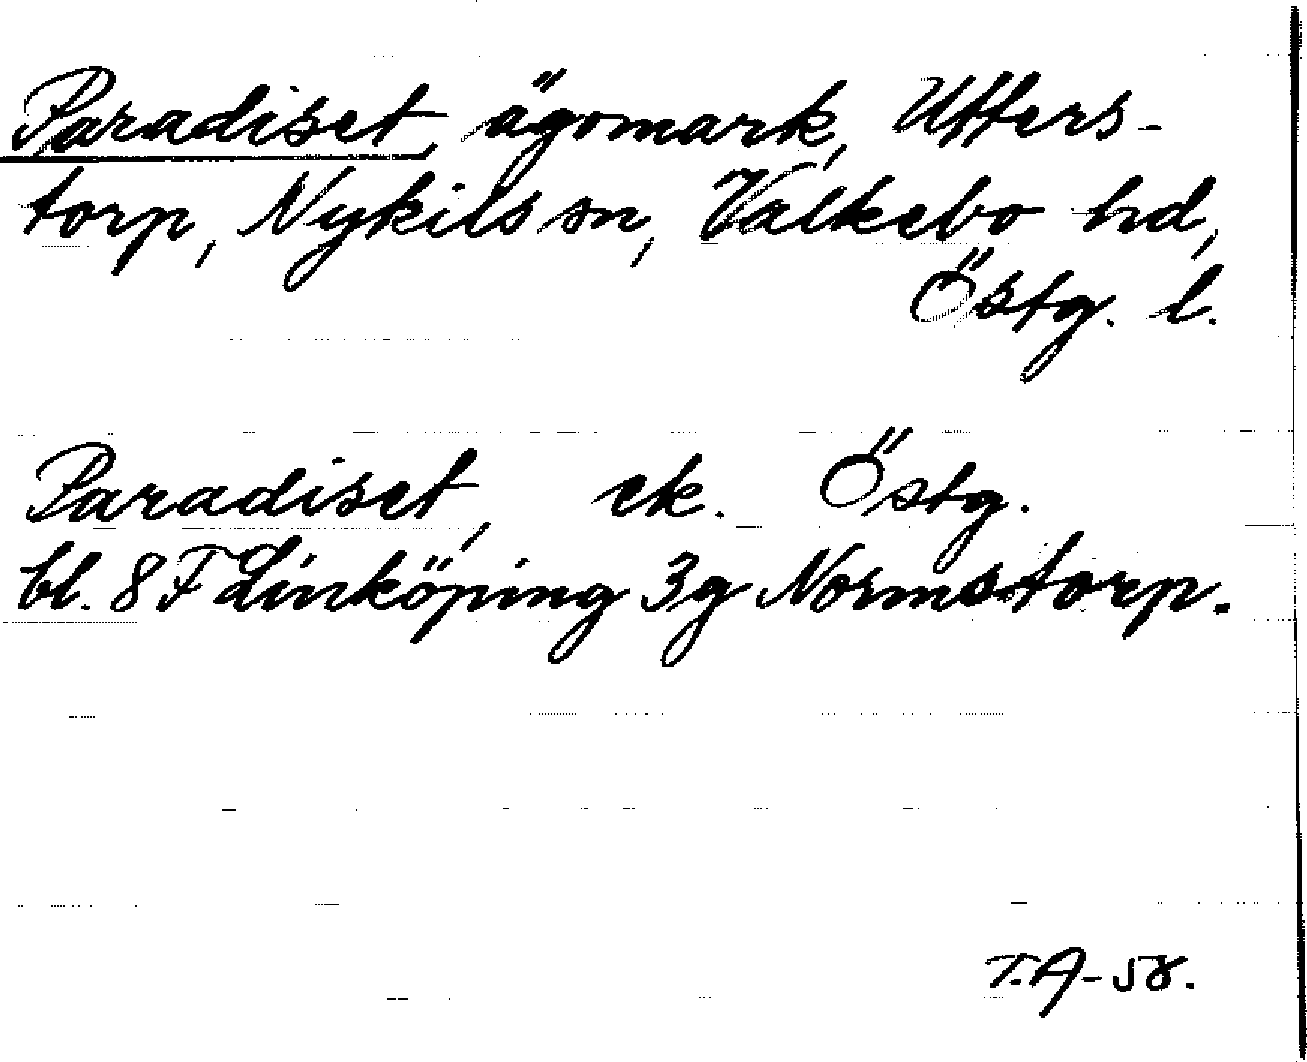 Paradiset, ägomark, Uffers-
torp, Nykils sn, Valkebo hd,
Östg. l.
Paradiset, ek. Östg.
bl. 8 F Linköping 3g Normstorp.
T.A-58.